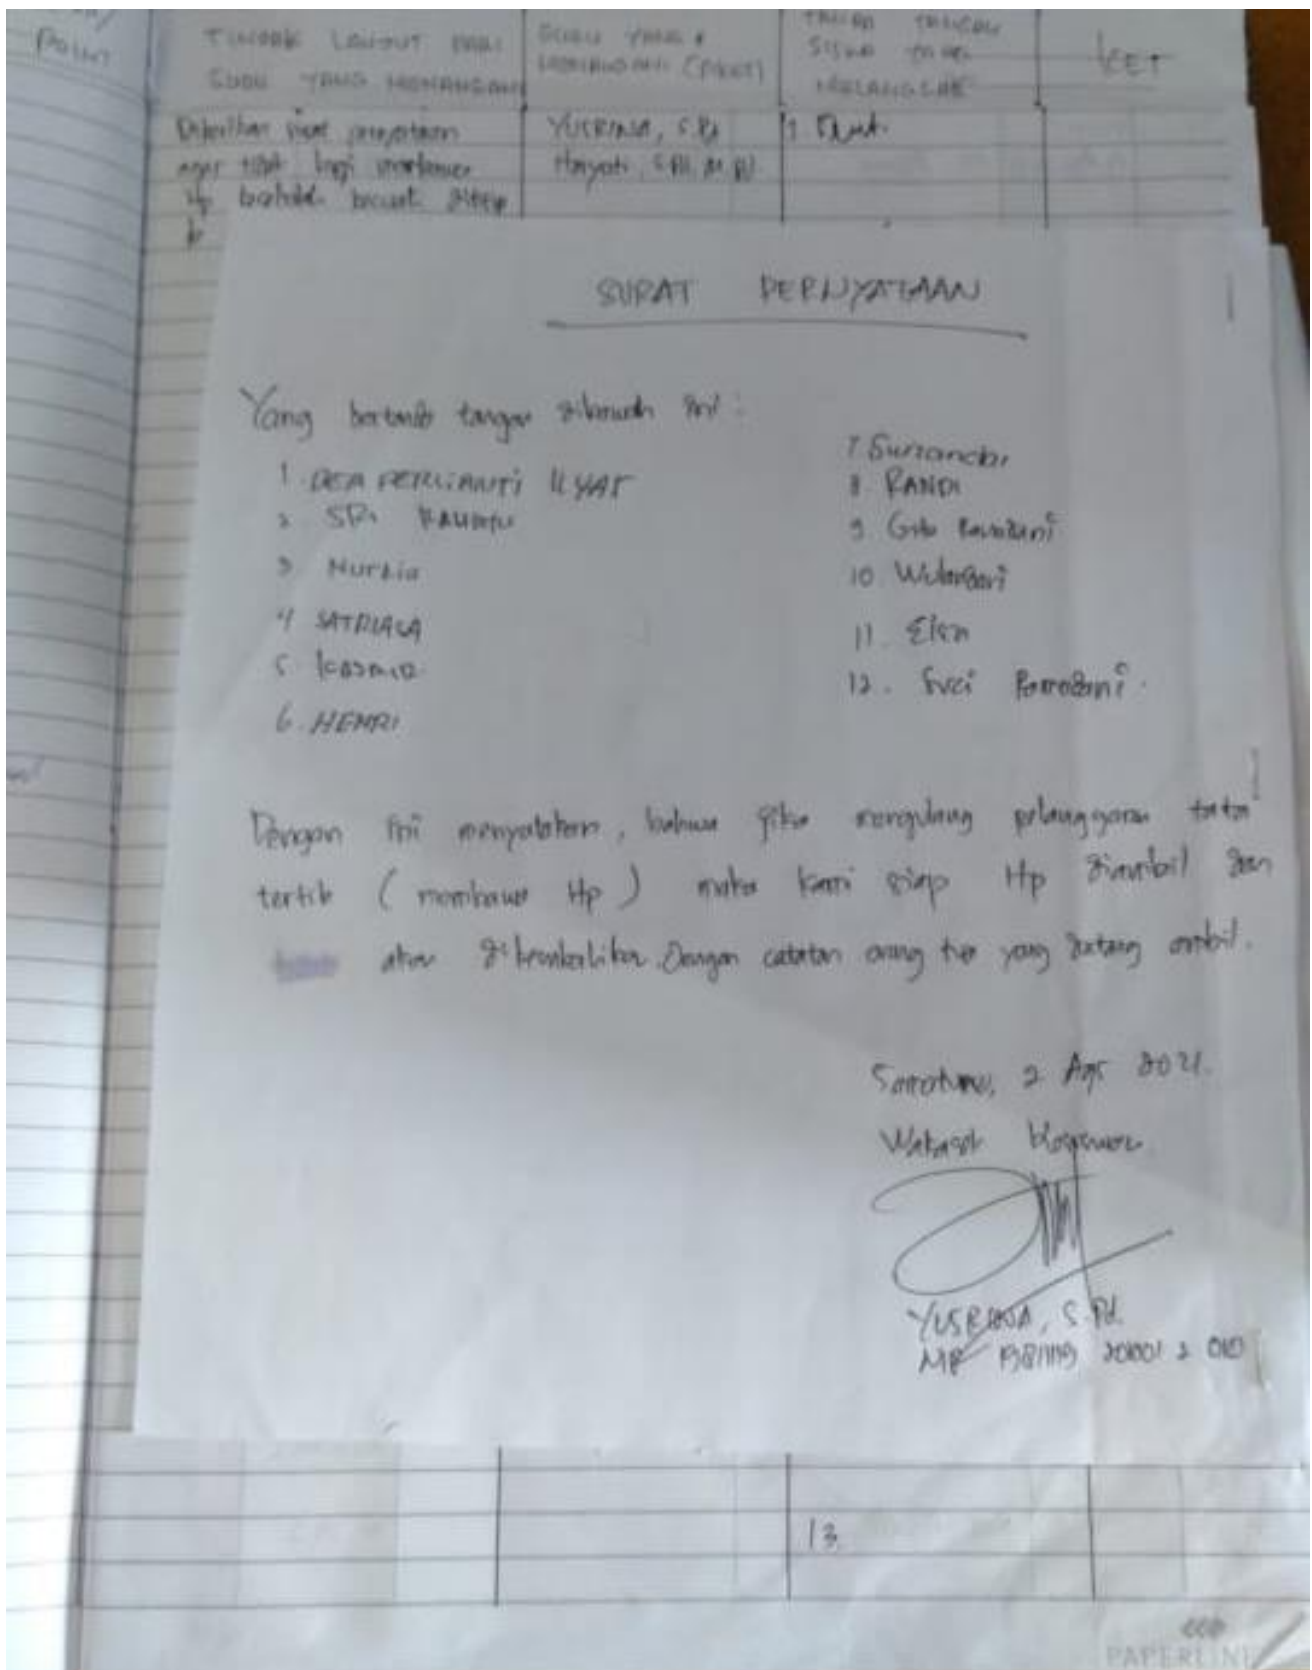 POINT
TINDAK LANJUT DARI
GURU YANG MENANGANI
GURU YANG
MENANGANI (PIKET)
TANDA TANGAN
SISWA YANG
MELANGGAR
KET
Diberikan surat pernyataan
agar tidak lagi membawa
Hp
YUSRINA, S.Pd
Hayati, S.Pd, M.Pd
1.
SURAT PERNYATAAN
Yang bertanda tangan dibawah ini :
1. DEA FERLIANTI ILYAS
2. SRI RAHAYU
3. Nurlia
4. SATRIAGA
5. Kasmia
6. HENRI
7. Sunandar
8. RANDI
9. Gita Ramadani
10. Wulandari
11. Elsa
12. Suci Ramadani
Dengan ini menyatakan, bahwa jika mengulang pelanggaran tata
tertib ( membawa Hp ) maka kami siap Hp diambil dan
akan dikembalikan Dengan catatan orang tua yang datang ambil.
2 Ags 2021.
Wakasek
YUSRINA, S.Pd.
13.
PAPERLINE